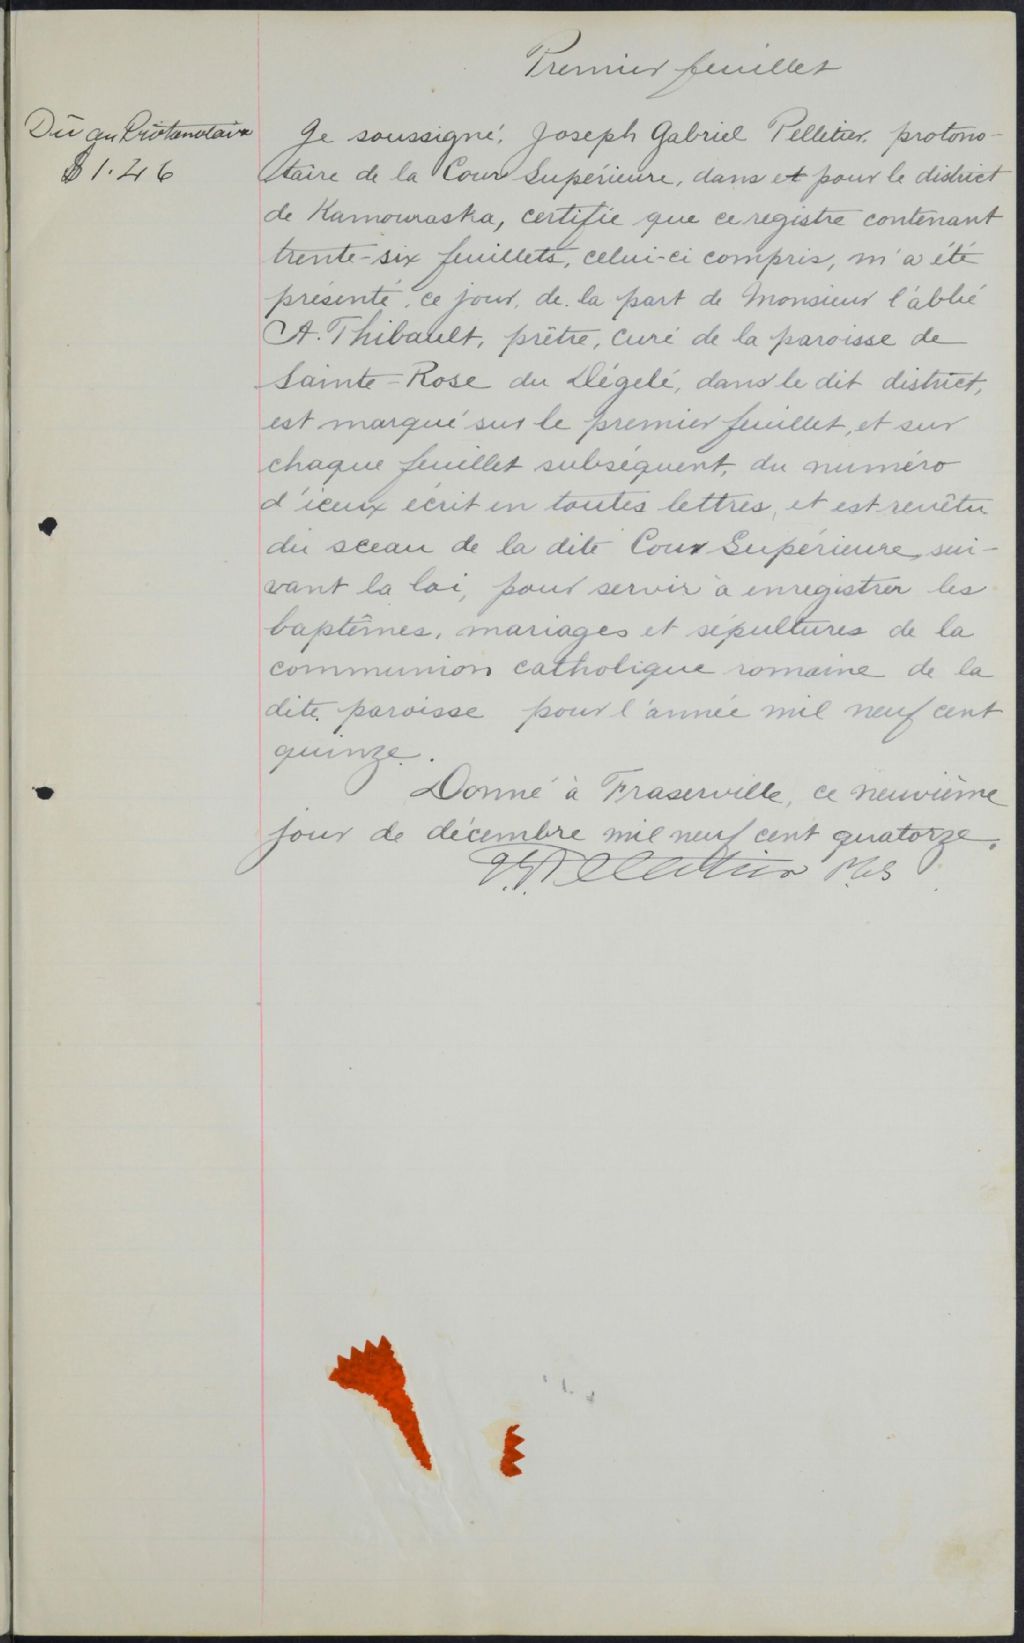 Premier feuillet
Dû au Protonotaire
$1.46
Je soussigné, Joseph Gabriel Pelletier, protono-
taire de la Cour Supérieure, dans et pour le district
de Kamouraska, certifie que ce registre contenant
trente-six feuillets, celui-ci compris, m'a été
présenté, ce jour, de la part de Monsieur l'abbé
A. Thibault, prêtre, curé de la paroisse de
Sainte-Rose du Dégelé, dans le dit district,
est marqué sur le premier feuillet, et sur
chaque feuillet subséquent, du numéro
d'iceux écrit en toutes lettres, et est revêtu
du sceau de la dite Cour Supérieure, sui-
vant la loi, pour servir à enregistrer les
baptêmes, mariages et sépultures de la
communion catholique romaine de la
dite paroisse pour l'année mil neuf cent
quinze.
Donné à Fraserville, ce neuvième
jour de décembre mil neuf cent quatorze.
J. G. Pelletier P.C.S.